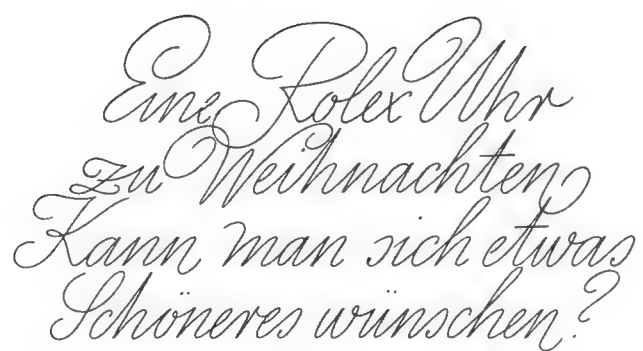 Eine Rolex Uhr
zu Weihnachten
Kann man sich etwas
Schöneres wünschen?